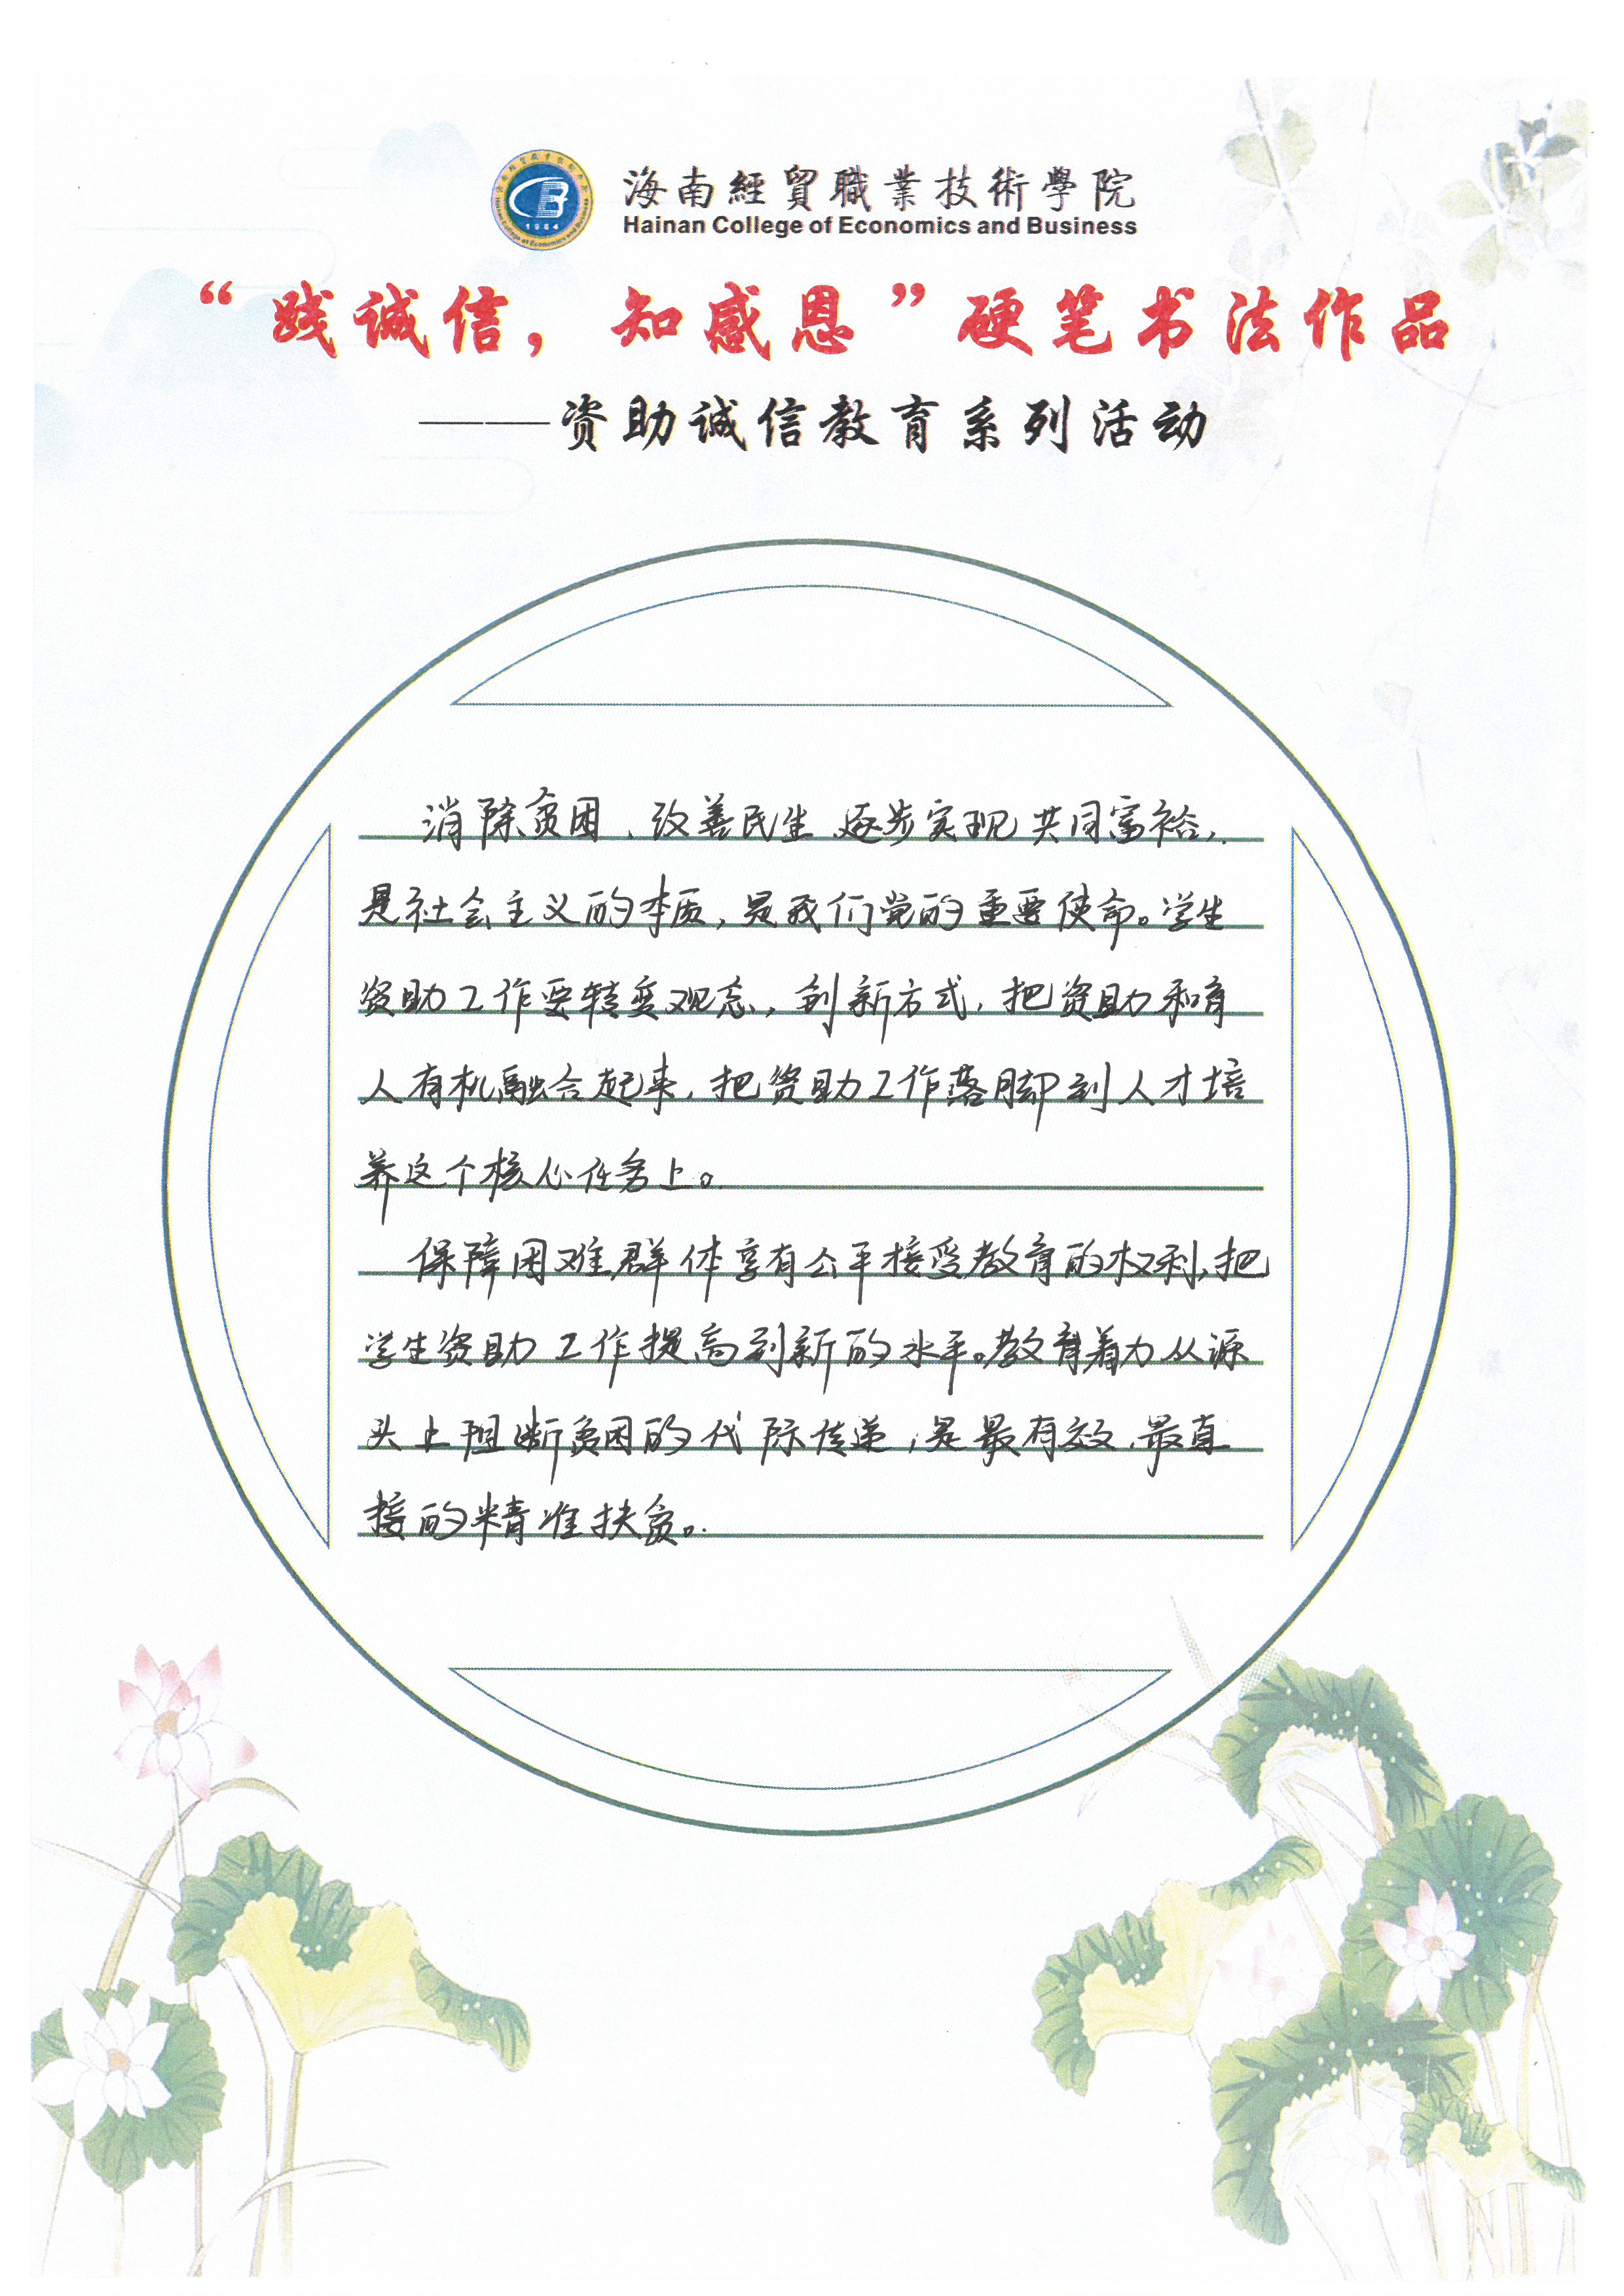 海南經貿職業技術學院
Hainan College of Economics and Business
1984
“践诚信，知感恩”硬笔书法作品
——资助诚信教育系列活动
消除贫困、改善民生、逐步实现共同富裕，
是社会主义的本质，是我们党的重要使命。学生
资助工作要转变观念，创新方式，把资助和育
人有机融合起来，把资助工作落脚到人才培
养这个核心任务上。
保障困难群体享有公平接受教育的权利，把
学生资助工作提高到新的水平。教育着力从源
头上阻断贫困的代际传递，是最有效、最直
接的精准扶贫。